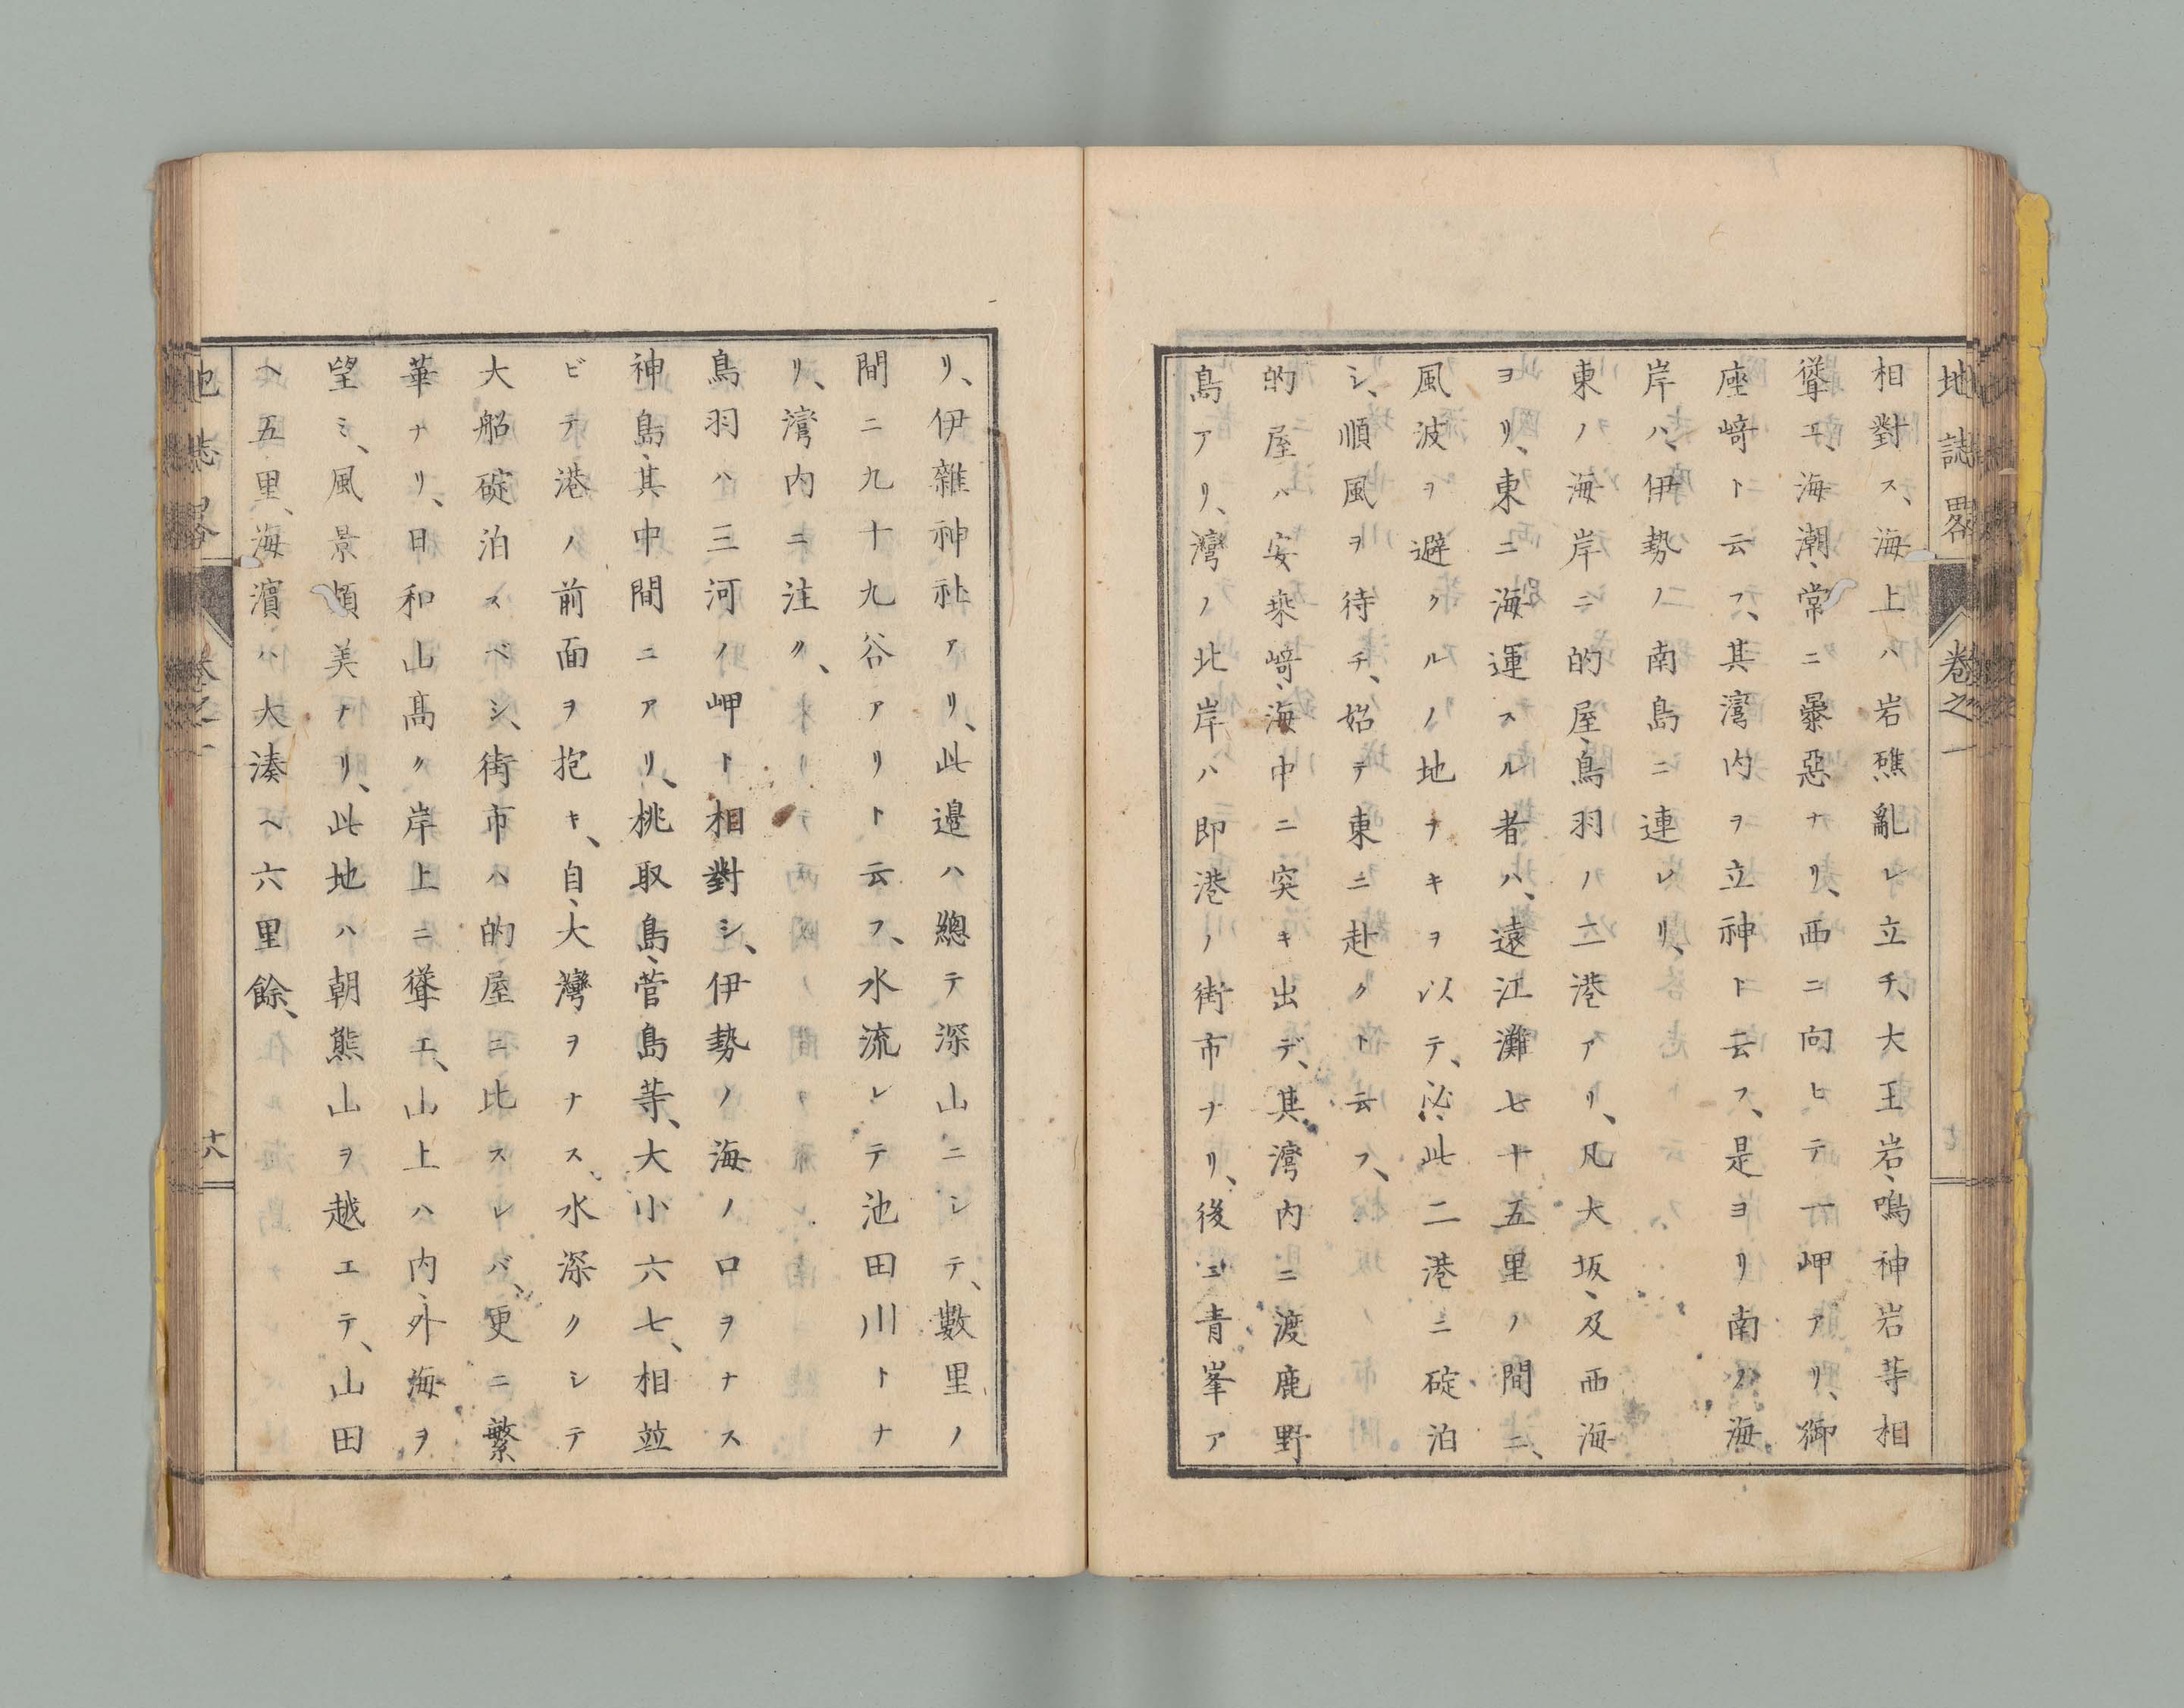 地誌畧 卷之一
相對ス、海上ハ岩礁亂レ立チ、大王岩、鳴神岩等相
聳エ、海潮、常ニ暴惡ナリ、西ニ向ヒテ一岬アリ、御
座﨑ト云フ、其灣内ヲ立神ト云フ、是ヨリ南ノ海
岸ハ、伊勢ノ南島ニ連レリ、
東ノ海岸ニ的屋、鳥羽ノ二港アリ、凡大坂、及西海
ヨリ、東ニ海運スル者ハ、遠江灘七十五里ノ間ニ、
風波ヲ避クルノ地ナキヲ以テ、必、此二港ニ碇泊
シ、順風ヲ待チ、始テ東ニ赴クト云フ、
的屋ハ安乘﨑、海中ニ突キ出デ、其灣内ニ渡鹿野
島アリ、灣ノ北岸ハ即港ノ街市ナリ、後ニ青峯ア
リ、伊雜神社アリ、此邊ハ總テ深山ニシテ、數里ノ
間ニ九十九谷アリト云フ、水流レテ池田川トナ
リ、灣内ニ注ク、
鳥羽ハ三河ノ岬ト相對シ、伊勢ノ海ノ口ヲナス
神島、其中間ニアリ、桃取島、菅島等、大小六七、相竝
ビテ港ノ前面ヲ抱キ、自、大灣ヲナス、水深クシテ
大船碇泊スベシ、街市ハ的屋ニ比スレバ、更ニ繁
華ナリ、日和山高ク岸上ニ聳エ、山上ハ内、外海ヲ
望ミ、風景頗美ナリ、此地ハ朝熊山ヲ越エテ、山田
ヘ五里、海濵ハ大湊ヘ六里餘、
地誌畧 卷之一 十八